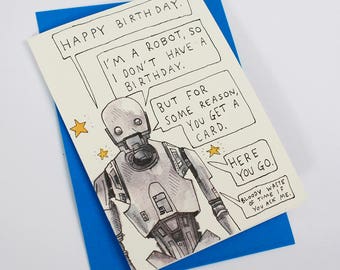 HAPPY BIRTHDAY.
I'M A ROBOT, SO
I DON'T HAVE A
BIRTHDAY.
BUT FOR
SOME REASON,
YOU GET A
CARD.
HERE
YOU GO.
BLOODY WASTE
OF TIME IF
YOU ASK ME.